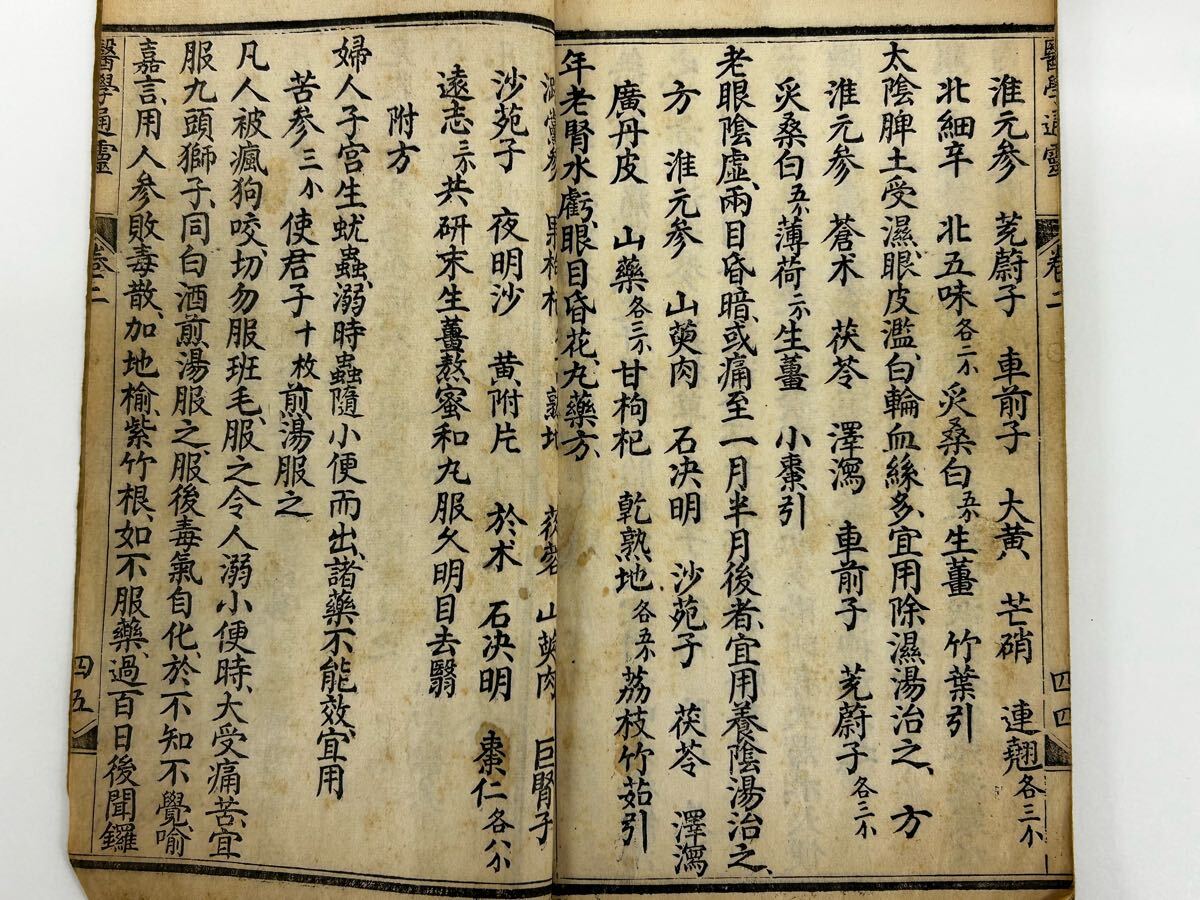 醫學通靈 卷二 四四
淮元參 茺蔚子 車前子 大黃 芒硝 連翹各三小
北細辛 北五味各二小 炙桑白五小 生薑 竹葉引
太陰脾土受濕、眼皮濫、白輪血絲多、宜用除濕湯治之、方
淮元參 蒼术 茯苓 澤瀉 車前子 茺蔚子各三小
炙桑白五小 薄荷二小 生薑 小棗引
老眼陰虛、兩目昏暗、或痛至一月半月後者、宜用養陰湯治之、
方 淮元參 山萸肉 石决明 沙苑子 茯苓 澤瀉
廣丹皮 山藥各三小 甘枸杞 乾熟地各五小 荔枝竹茹引
年老腎水虧、眼目昏花、丸藥方、
潞黨參 熟地 山萸肉 巨腎子
沙苑子 夜明沙 黃附片 於术 石决明 棗仁各八小
遠志三小 共研末生薑熬蜜和丸服久明目去翳
附方
婦人子宮生蚘蟲、溺時蟲隨小便而出、諸藥不能效、宜用
苦參三小 使君子十枚 煎湯服之
凡人被瘋狗咬、切勿服班毛、服之令人溺小便時、大受痛苦、宜
服九頭獅子、同白酒煎湯服之、服後毒氣自化、於不知不覺喻
嘉言、用人參敗毒散、加地榆、紫竹根、如不服藥、過百日後聞鑼
醫學通靈 卷二 四五